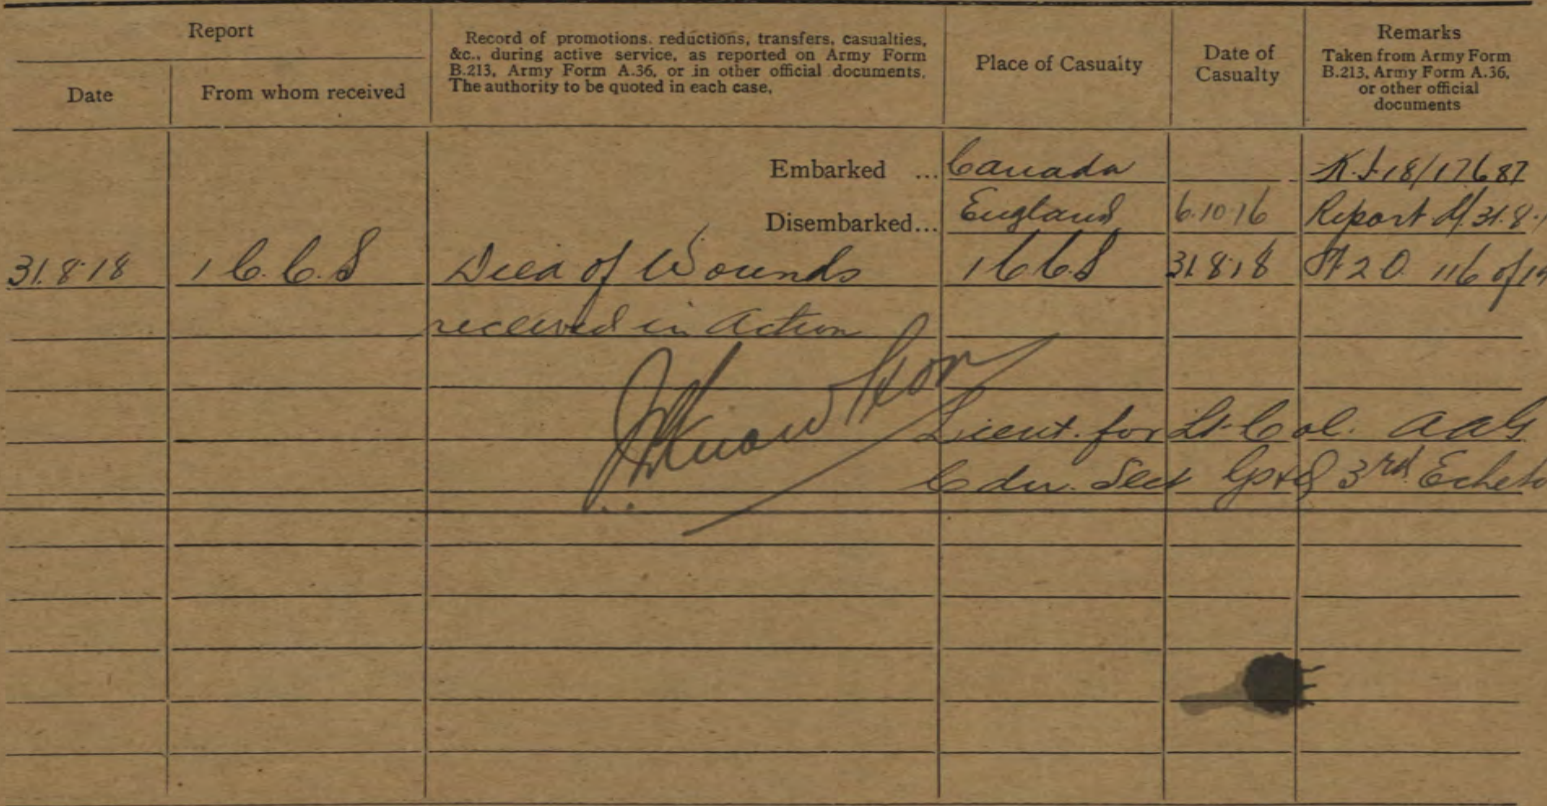 Report
Date
From whom received
Record of promotions. reductions, transfers, casualties,
&c., during active service, as reported on Army Form
B.213, Army Form A.36, or in other official documents.
The authority to be quoted in each case.
Place of Casualty
Date of
Casualty
Remarks
Taken from Army Form
B.213, Army Form A.36,
or other official
documents
Embarked ... Canada 18/17687
Disembarked... England 6.10.16 Report 31.8.
31.8.18 1 C.C.S Died of Wounds 1 C C S 31.8.18 116 of
received in Action
Lieut. for Lt-Col. AAG
Cdn. Sect 3rd. Echelo